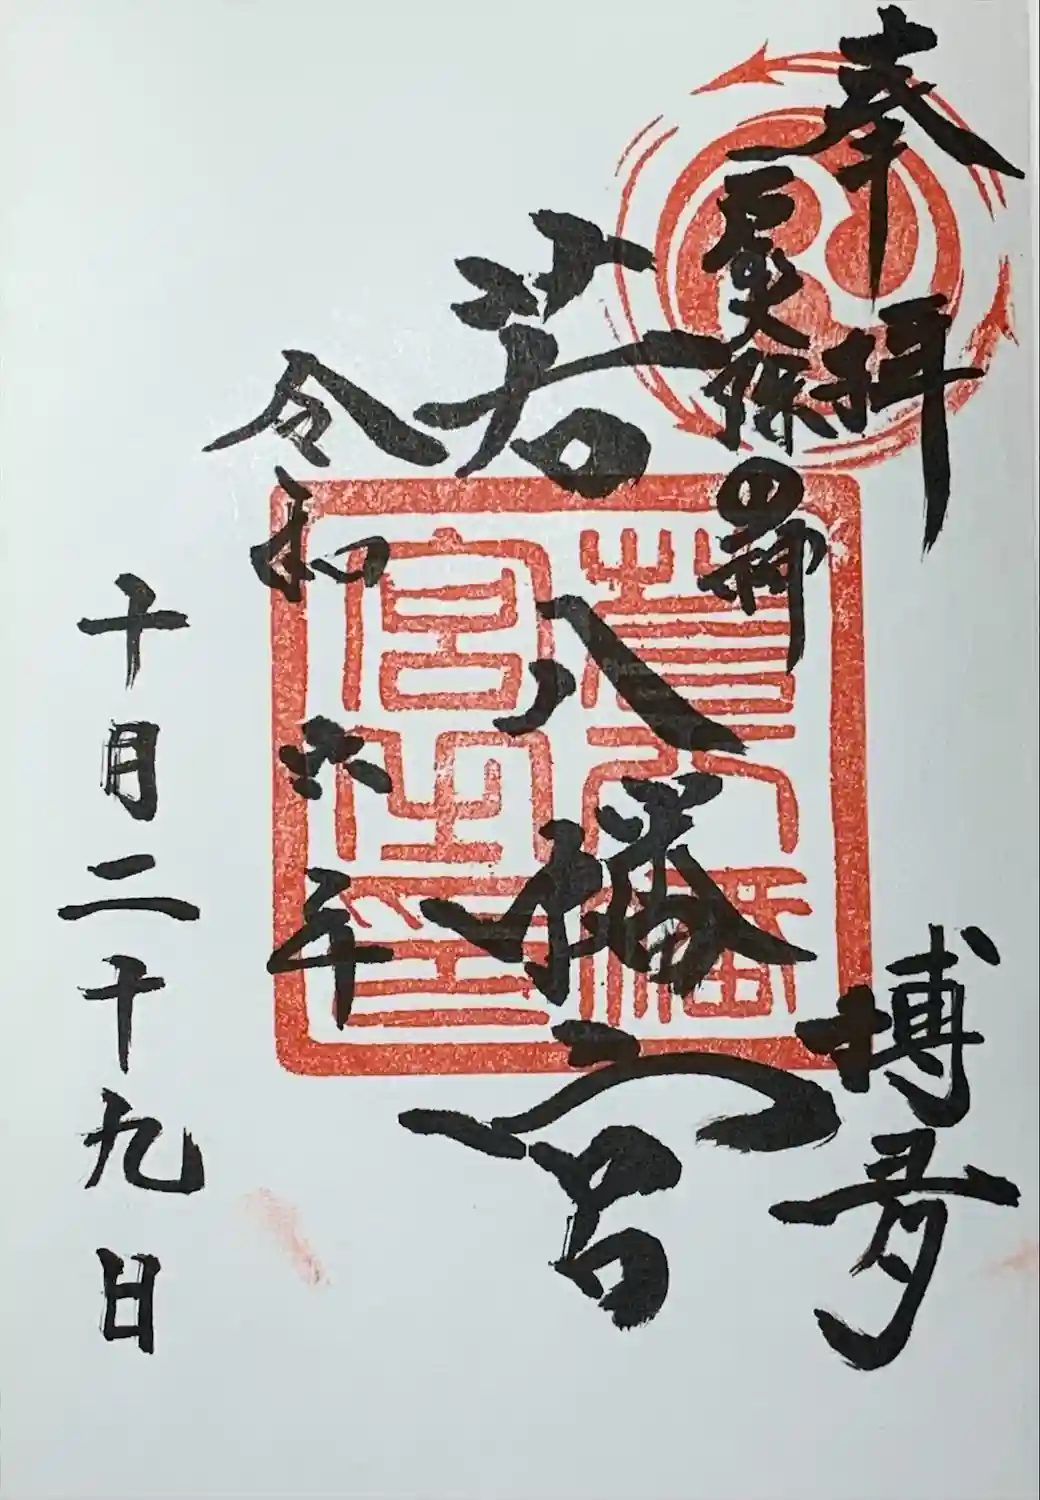 奉拝
博多
若八幡宮
令和六年
十月二十九日
若八幡
宮社印